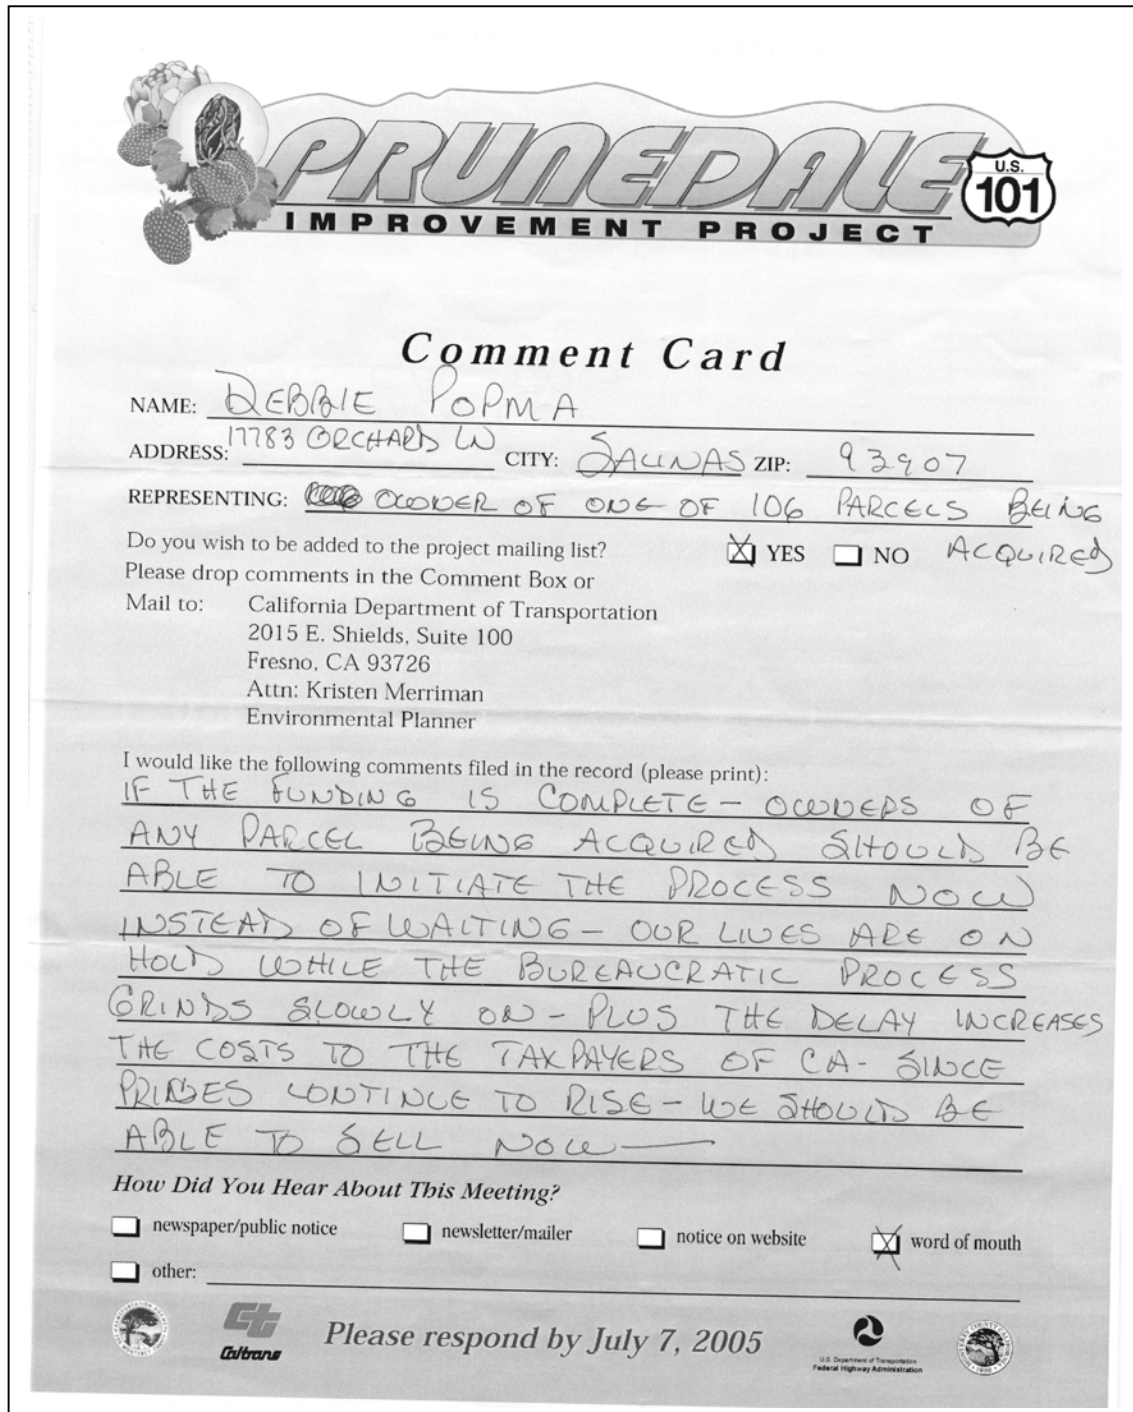 PRUNEDALE
U.S.
101
IMPROVEMENT PROJECT
Comment Card
NAME: DEBBIE POPMA
ADDRESS: 17783 ORCHARD LN CITY: SALINAS ZIP: 93907
REPRESENTING: OWNER OF ONE OF 106 PARCELS BEING
Do you wish to be added to the project mailing list? YES NO ACQUIRED
Please drop comments in the Comment Box or
Mail to: California Department of Transportation
2015 E. Shields, Suite 100
Fresno, CA 93726
Attn: Kristen Merriman
Environmental Planner
I would like the following comments filed in the record (please print):
IF THE FUNDING IS COMPLETE - OWNERS OF
ANY PARCEL BEING ACQUIRED SHOULD BE
ABLE TO INITIATE THE PROCESS NOW
INSTEAD OF WAITING - OUR LIVES ARE ON
HOLD WHILE THE BUREAUCRATIC PROCESS
GRINDS SLOWLY ON - PLUS THE DELAY INCREASES
THE COSTS TO THE TAXPAYERS OF CA - SINCE
PRICES CONTINUE TO RISE - WE SHOULD BE
ABLE TO SELL NOW —
How Did You Hear About This Meeting?
newspaper/public notice newsletter/mailer notice on website word of mouth
other:
Caltrans
Please respond by July 7, 2005
U.S. Department of Transportation
Federal Highway Administration